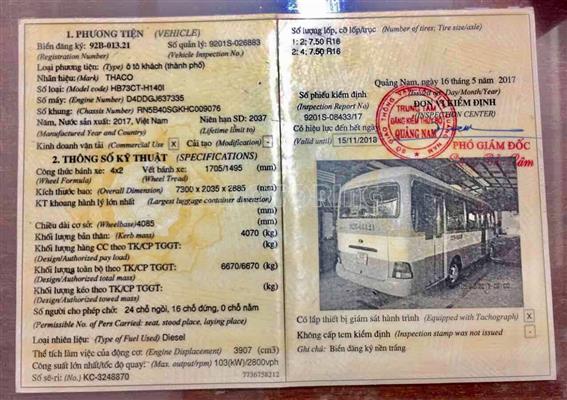 1. PHƯƠNG TIỆN (VEHICLE)
Biển đăng ký: 92B-013.21 Số quản lý: 9201S-026883
(Registration Number) (Vehicle Inspection No.)
Loại phương tiện: (Type) ô tô khách (thành phố)
Nhãn hiệu: (Mark) THACO
Số loại: (Model code) HB73CT-H140I
Số máy: (Engine Number) D4DDGJ637335
Số khung: (Chassis Number) RN5B40SGKHC009076
Năm, Nước sản xuất: 2017, Việt Nam Niên hạn SD: 2037
(Manufactured Year and Country) (Lifetime limit to)
Kinh doanh vận tải (Commercial Use) X Cải tạo (Modification) -
2. THÔNG SỐ KỸ THUẬT (SPECIFICATIONS)
Công thức bánh xe: 4x2 Vết bánh xe: 1705/1495 (mm)
(Wheel Formula) (Wheel Tread)
Kích thước bao: (Overall Dimension) 7300 x 2035 x 2885 (mm)
KT khoang hành lý lớn nhất (Largest luggage container dimension)
(mm)
Chiều dài cơ sở: (Wheelbase) 4085 (mm)
Khối lượng bản thân: (Kerb mass) 4070 (kg)
Khối lượng hàng CC theo TK/CP TGGT: (kg)
(Design/Authorized pay load)
Khối lượng toàn bộ theo TK/CP TGGT: 6670/6670 (kg)
(Design/Authorized total mass)
Khối lượng kéo theo TK/CP TGGT: (kg)
(Design/Authorized towed mass)
Số người cho phép chở: 24 chỗ ngồi, 16 chỗ đứng, 0 chỗ nằm
(Permissible No. of Pers Carried: seat, stood place, laying place)
Loại nhiên liệu: (Type of Fuel Used) Diesel
Thể tích làm việc của động cơ: (Engine Displacement) 3907 (cm3)
Công suất lớn nhất/tốc độ quay: (Max. output/rpm) 103(kW)/2800vph
Số sê-ri: (No.) KC-3248870 7736758212
Số lượng lốp, cỡ lốp/trục (Number of tires; Tire size/axle)
1: 2; 7.50 R16
2: 4; 7.50 R16
Quảng Nam, ngày 16 tháng 5 năm 2017
Số phiếu kiểm định Day/Month/Year)
(Inspection Report No) ĐƠN VỊ KIỂM ĐỊNH
9201S-08433/17 (INSPECTION CENTER)
Có hiệu lực đến hết ngày
(Valid until) 15/11/2018
TRUNG TÂM
ĐĂNG KIỂM THỦY BỘ
QUẢNG NAM
PHÓ GIÁM ĐỐC
Có lắp thiết bị giám sát hành trình (Equipped with Tachograph) X
Không cấp tem kiểm định (Inspection stamp was not issued) -
Ghi chú: Biển đăng ký nền trắng